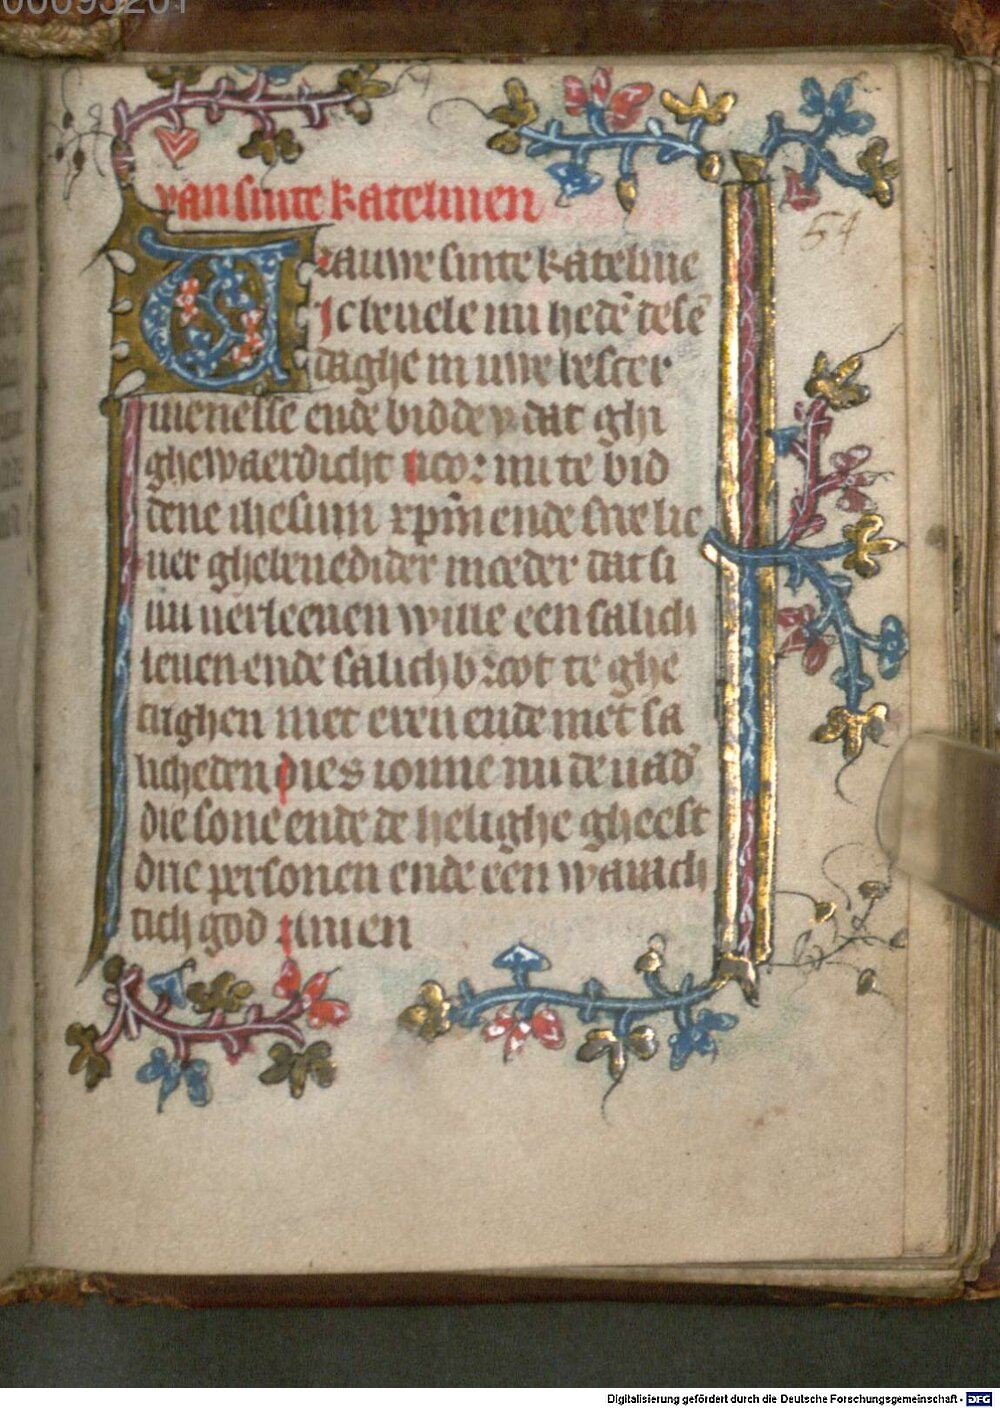 00095201
van sinte katelinen
54
Vrauwe sinte kateline
Ic beuele mi hedē desē
daghe in uwe bescer
menesse ende bidde v dat ghi
ghewaerdicht voor mi te bid
dene ihesum xpm̄ ende sire lie
uer ghebenedider moeder dat si
mi uerleenen wille een salich
leuen ende salich broot te ghe
crighen met eren ende met sa
licheden Dies ionne mi de uad̄
die sone ende de helighe gheest
drie personen ende een warach
tich god Amen
Digitalisierung gefördert durch die Deutsche Forschungsgemeinschaft - DFG